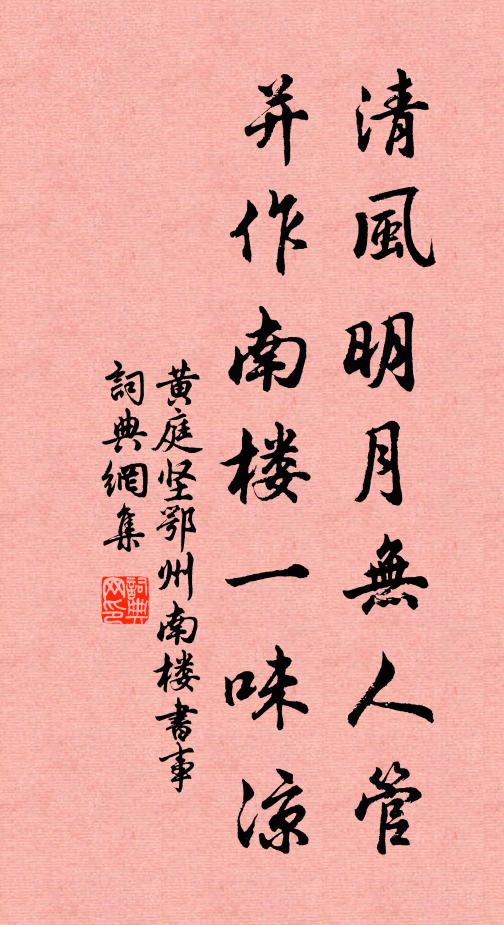 清風明月無人管
并作南楼一味凉
黄庭坚鄂州南楼書事
詞典網集
詞典網印